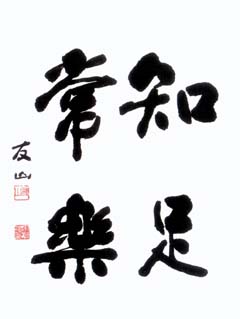 知足
常樂
友山